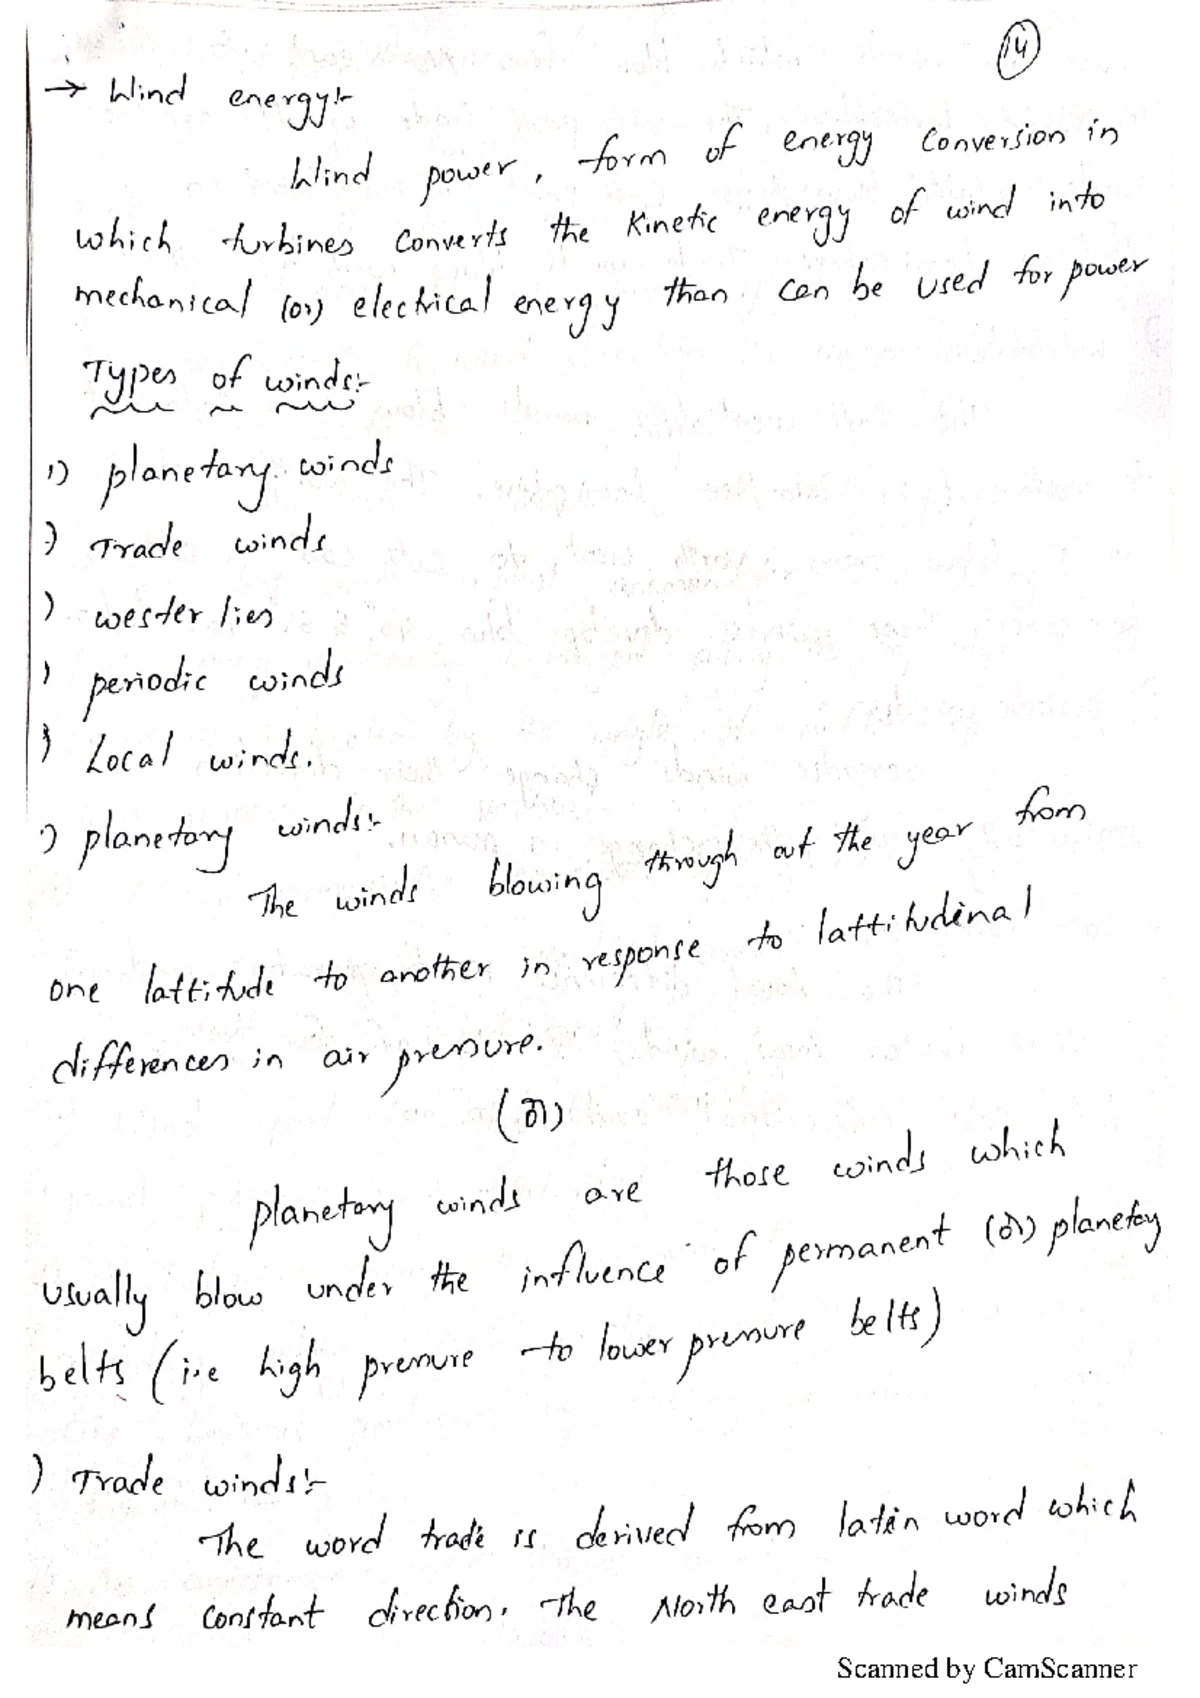 14
→ Wind energy:-
Wind power, form of energy conversion in
which turbines converts the kinetic energy of wind into
mechanical (or) electrical energy than can be used for power
Types of winds:-
1) planetary winds
) Trade winds
) westerlies
) periodic winds
) Local winds.
) planetary winds:-
The winds blowing through out the year from
one lattitude to another in response to lattitudinal
differences in air pressure.
(or)
planetary winds are those winds which
usually blow under the influence of permanent (or) planetary
belts (i.e high pressure to lower pressure belts)
) Trade winds:-
The word trade is derived from latin word which
means constant direction. The North east trade winds
Scanned by CamScanner